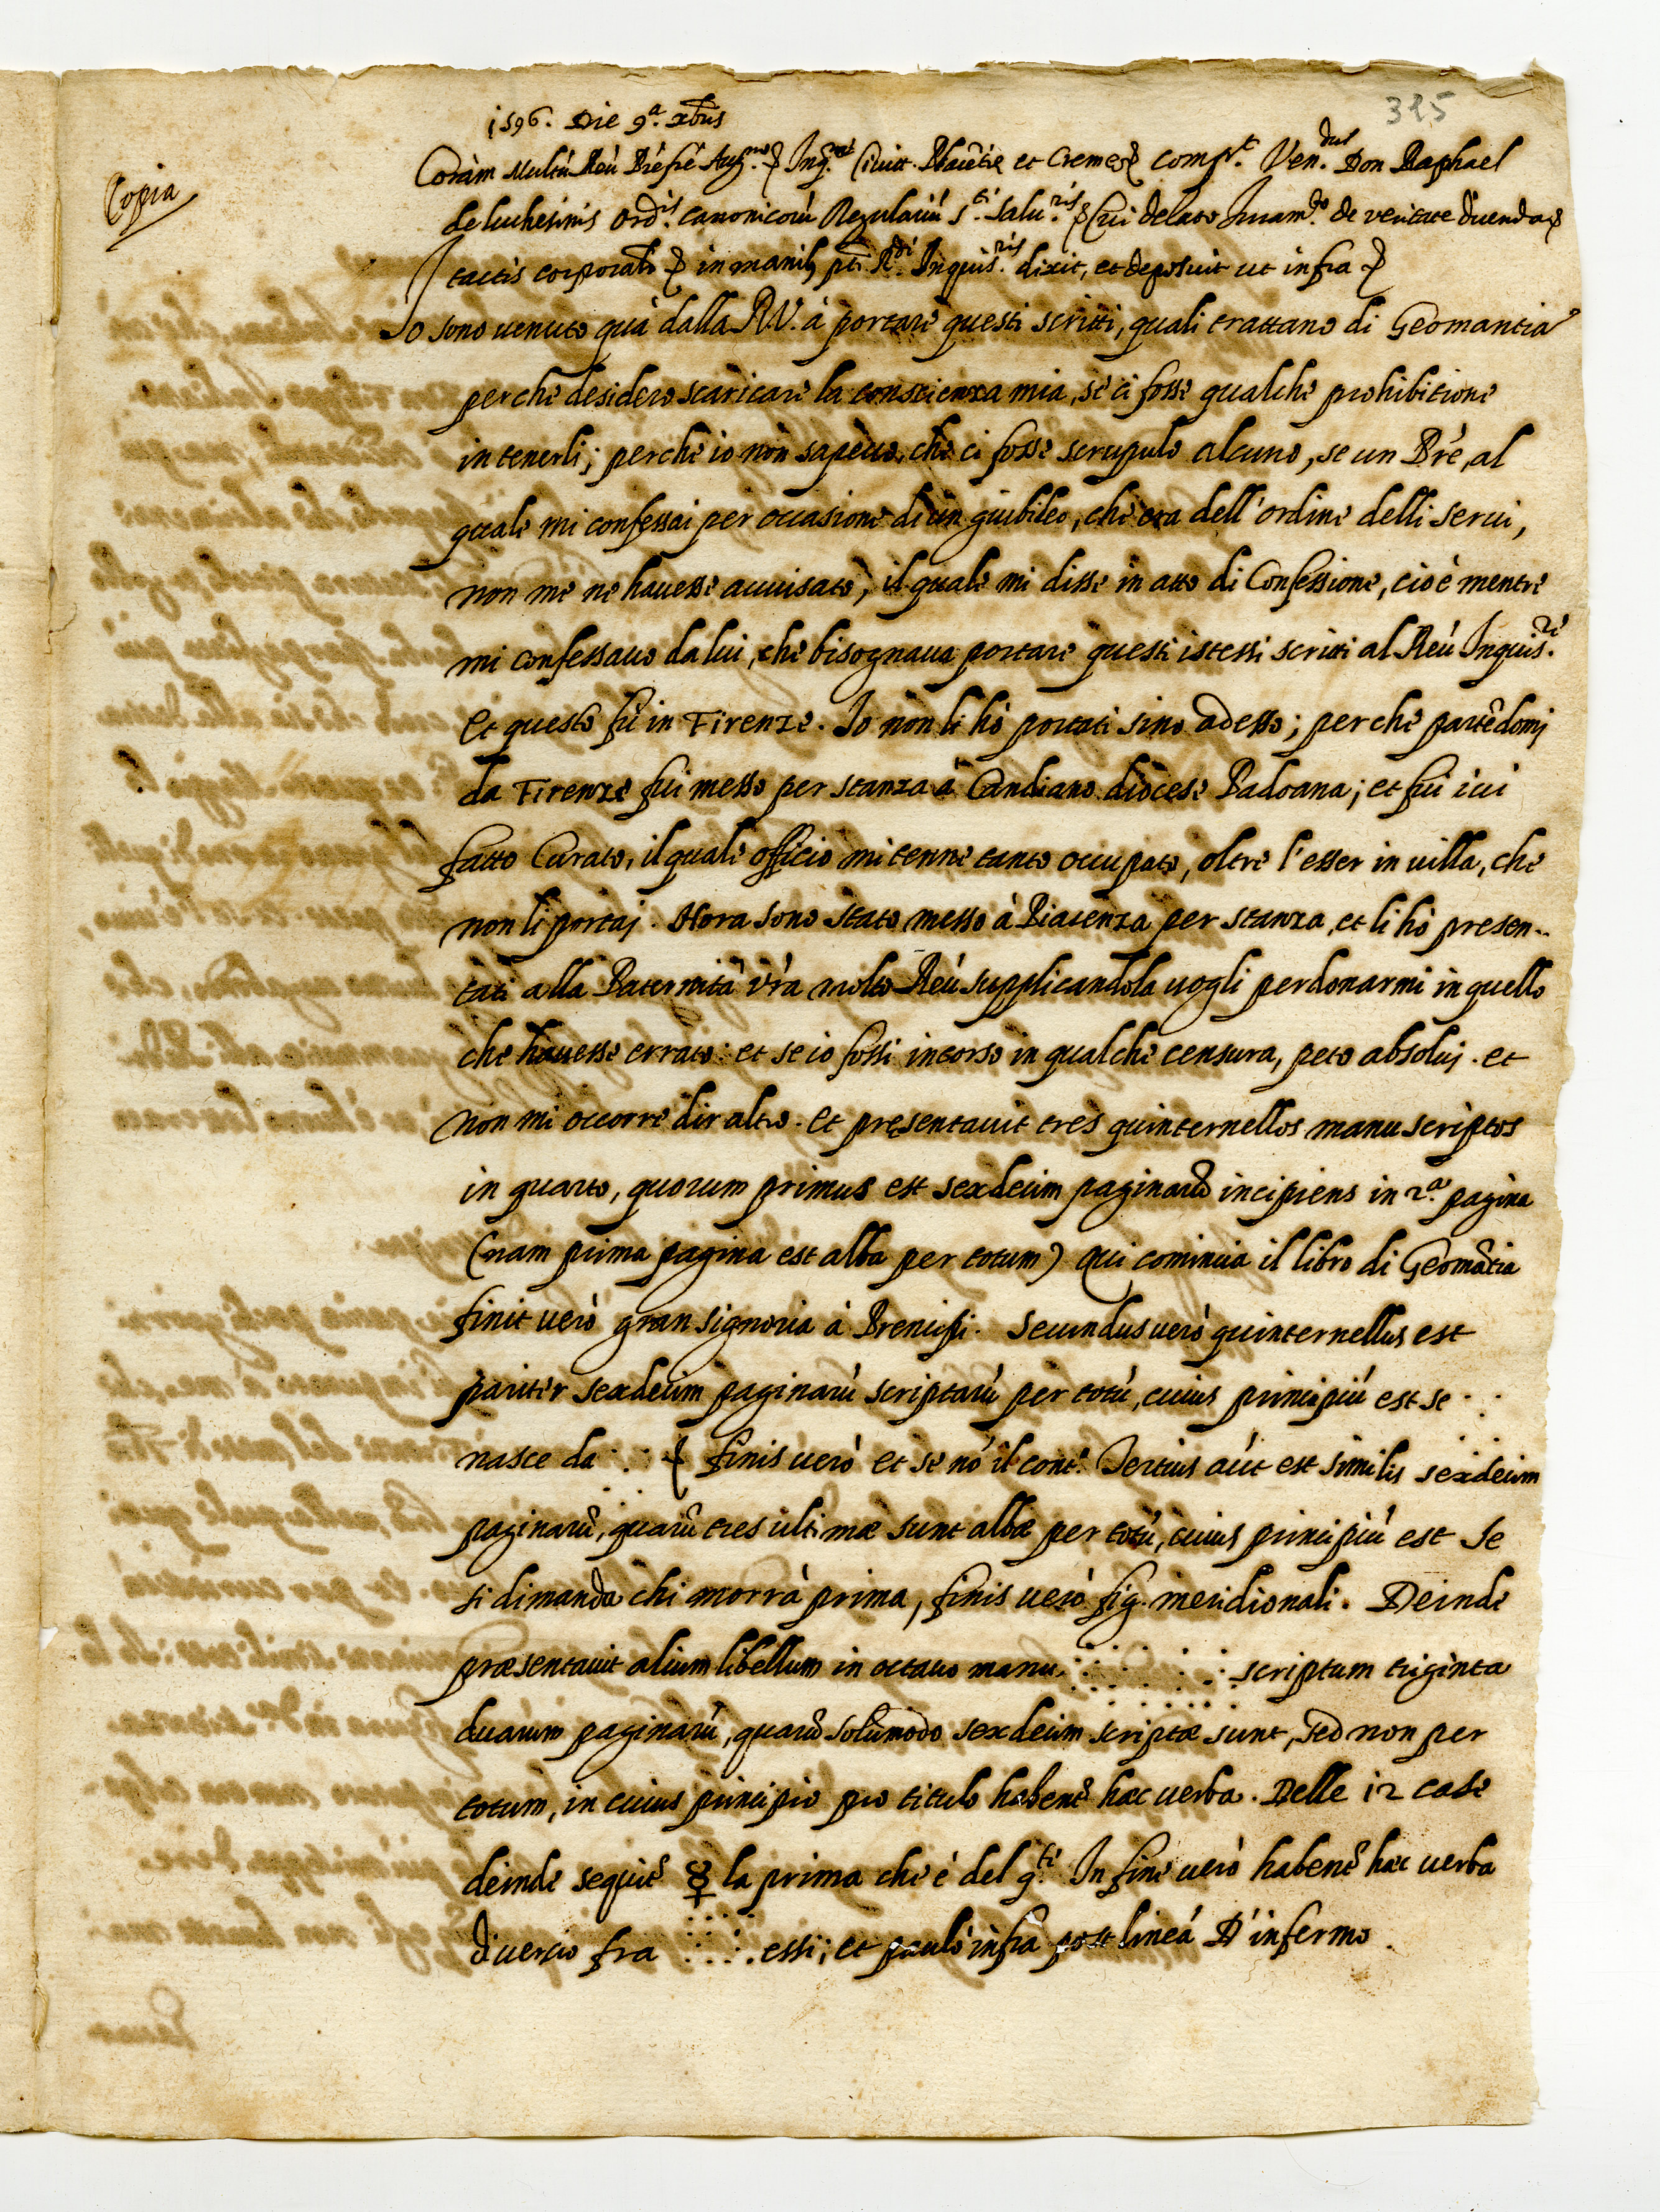 315
1596. Die 9.ª xbris
Copia
Coràm Multu Reu Prēfrē Aug.no & Inq.re Ciuit. Placētiæ et Cremę & comp.t Ven.dus Don Raphael
de luchesinis ord.is canonicorū Regulariū S.ti Salu.ris & Cui delato Iuram.to de veritate dicenda &
tactis corporalr & in manib9 pti R.di Inquis.ris dixit, et deposuit ut infra &
Io sono uenuto quà dalla R.V. à portare questi scritti, quali trattano di Geomantia
perche desidero scaricare la conscienza mia, se ci fosse qualche prohibitione
in tenerli; perche io non sapeuo, che ci fosse scrupulo alcuno, se un Prē, al
quale mi confessai per occasione di un giubileo, che era dell'ordine delli serui,
non me ne hauesse auuisato, il quale mi disse in atto di Confessione, cioè mentre
mi confessauo da lui, che bisognaua portare questi istessi scritti al Reu Inquis.re
Et questo fù in Firenze. Io non li hò portati sino adesso; perche partēdomi
da Firenze fui messo per stanza à Candiano diocese Padoana; et fui iui
fatto Curato, il quale officio mi tenne tanto occupato, oltre l'esser in uilla, che
non li portai. Hora sono stato messo à Piacenza per stanza, et li hò presen-
tati alla Paternità v̄ra molto Reu supplicandola uogli perdonarmi in quello
che hauesse errato: et se io fossi incorso in qualche censura, peto absolui. et
non mi occorre dir altro. Et pręsentauit tres quinternellos manuscriptos
in quarto, quorum primus est sexdecim paginarū incipiens in 2.ª pagina
(nam prima pagina est alba per totum) Qui comincia il libro di Geomātia
finit uerò gran signoria à Prencipi. Secundus uerò quinternellus est
pariter sexdecim paginarū scriptarū per totū, cuius principiū est se
nasce da & finis uerò et se nō il cont.º Tertius aūt est similis sexdecim
paginarū, quarū tres ultimæ sunt albæ per totū, cuius principiū est Se
si dimanda chi morrà prima, finis uerò fig. meridionali. Deinde
præsentauit alium libellum in octauo manu scriptum triginta
duarum paginarū, quarū solūmodo sexdecim scriptæ sunt, sed non per
totum, in cuius principio pro titulo habentr hæc uerba. Delle 12 case
deinde sequitr ☿ la prima che è del q.te In fine uerò habentr hæc uerba
diuerso fra essi; et paulò infra post lineā D'infermo